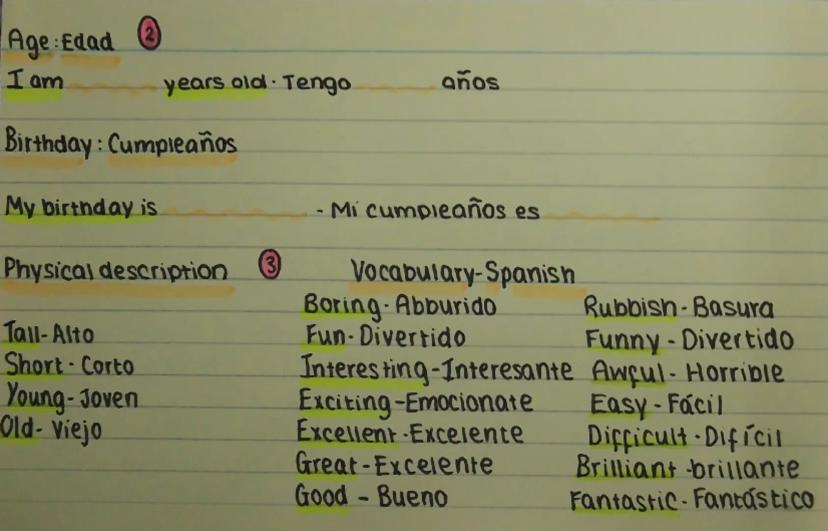 Age: Edad 2
I am years old. Tengo años
Birthday: Cumpleaños
My birthday is - Mi cumpleaños es
Physical description 3 Vocabulary-Spanish
Boring. Abburido Rubbish - Basura
Tall-Alto Fun-Divertido Funny - Divertido
Short - Corto Interesting-Interesante Awful- Horrible
Young- Joven Exciting-Emocionate Easy - Fácil
Old- Viejo Excellent-Excelente Difficult-Difícil
Great-Excelente Brilliant-brillante
Good - Bueno Fantastic-Fantástico